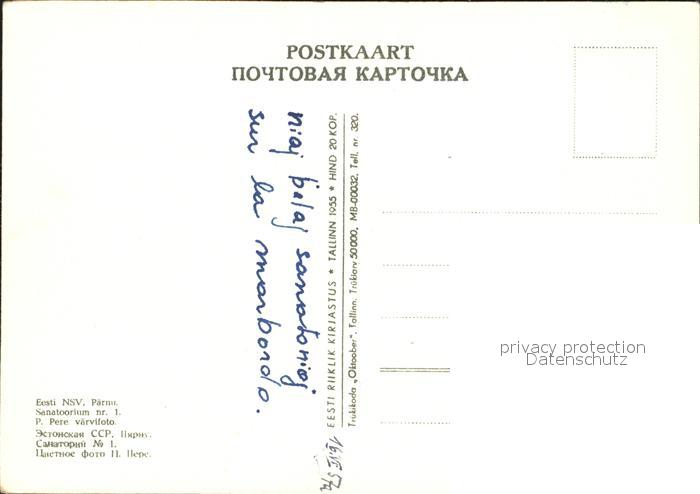 POSTKAART
ПОЧТОВАЯ КАРТОЧКА
niaj belaj sanatorioj
sur la marbordo.
EESTI RIIKLIK KIRJASTUS ★ TALLINN 1955 ★ HIND 20 KOP.
Trükikoda „Oktoober", Tallinn. Trükiarv 50000, MB-00032, Tell. nr. 320.
privacy protection
Datenschutz
Eesti NSV. Pärnu.
Sanatoorium nr. 1.
P. Pere värvifoto.
Эстонская ССР. Пярну.
Санаторий № 1.
Цветное фото П. Пере.